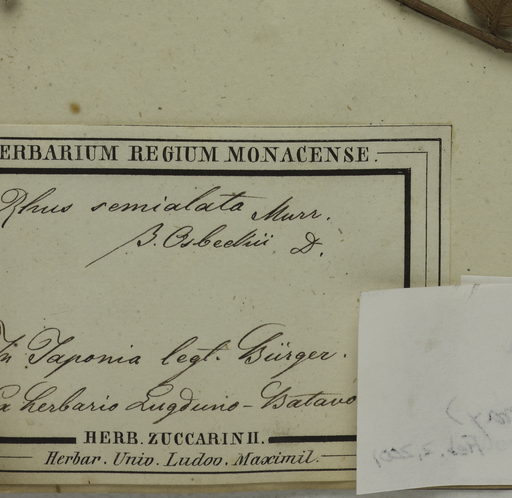 ERBARIUM REGIUM MONACENSE.
Rhus semialata Murr.
β. Osbeckii D.
In Japonia legt. Bürger.
ex herbario Lugduno-Batavo
HERB. ZUCCARINII.
Herbar. Univ. Ludov. Maximil.